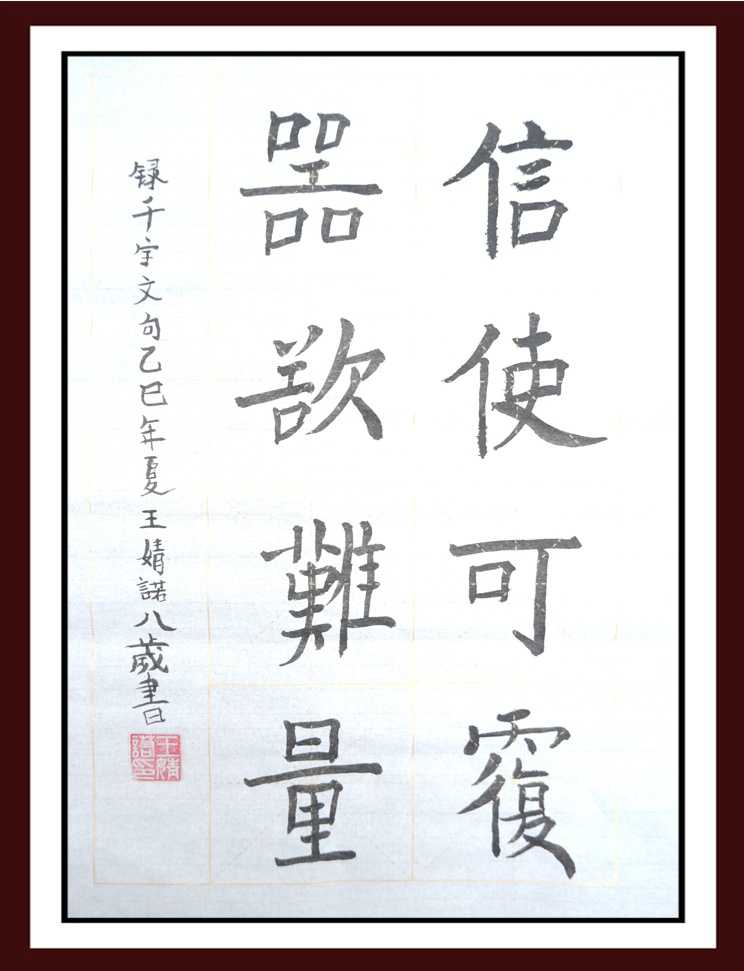 信使可覆
器欲難量
録千字文句乙巳年夏王婧諾八歲書
王婧諾印